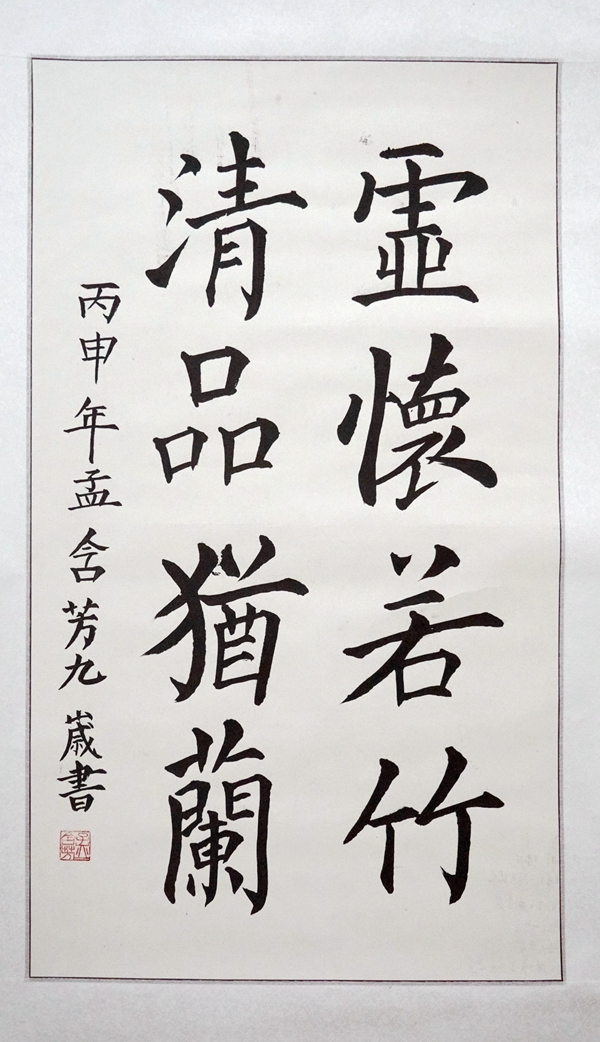 虛懷若竹
清品猶蘭
丙申年孟含芳九歲書